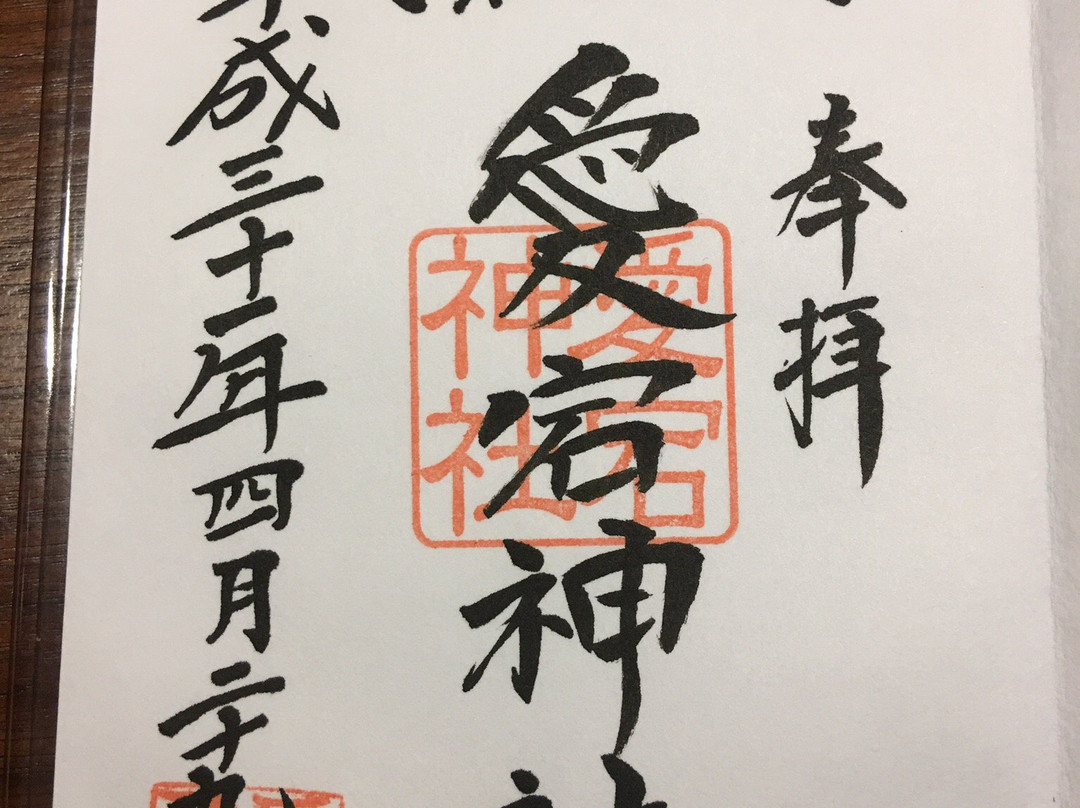 奉拝
愛宕神
愛宕
神社
平成三十一年四月二十九